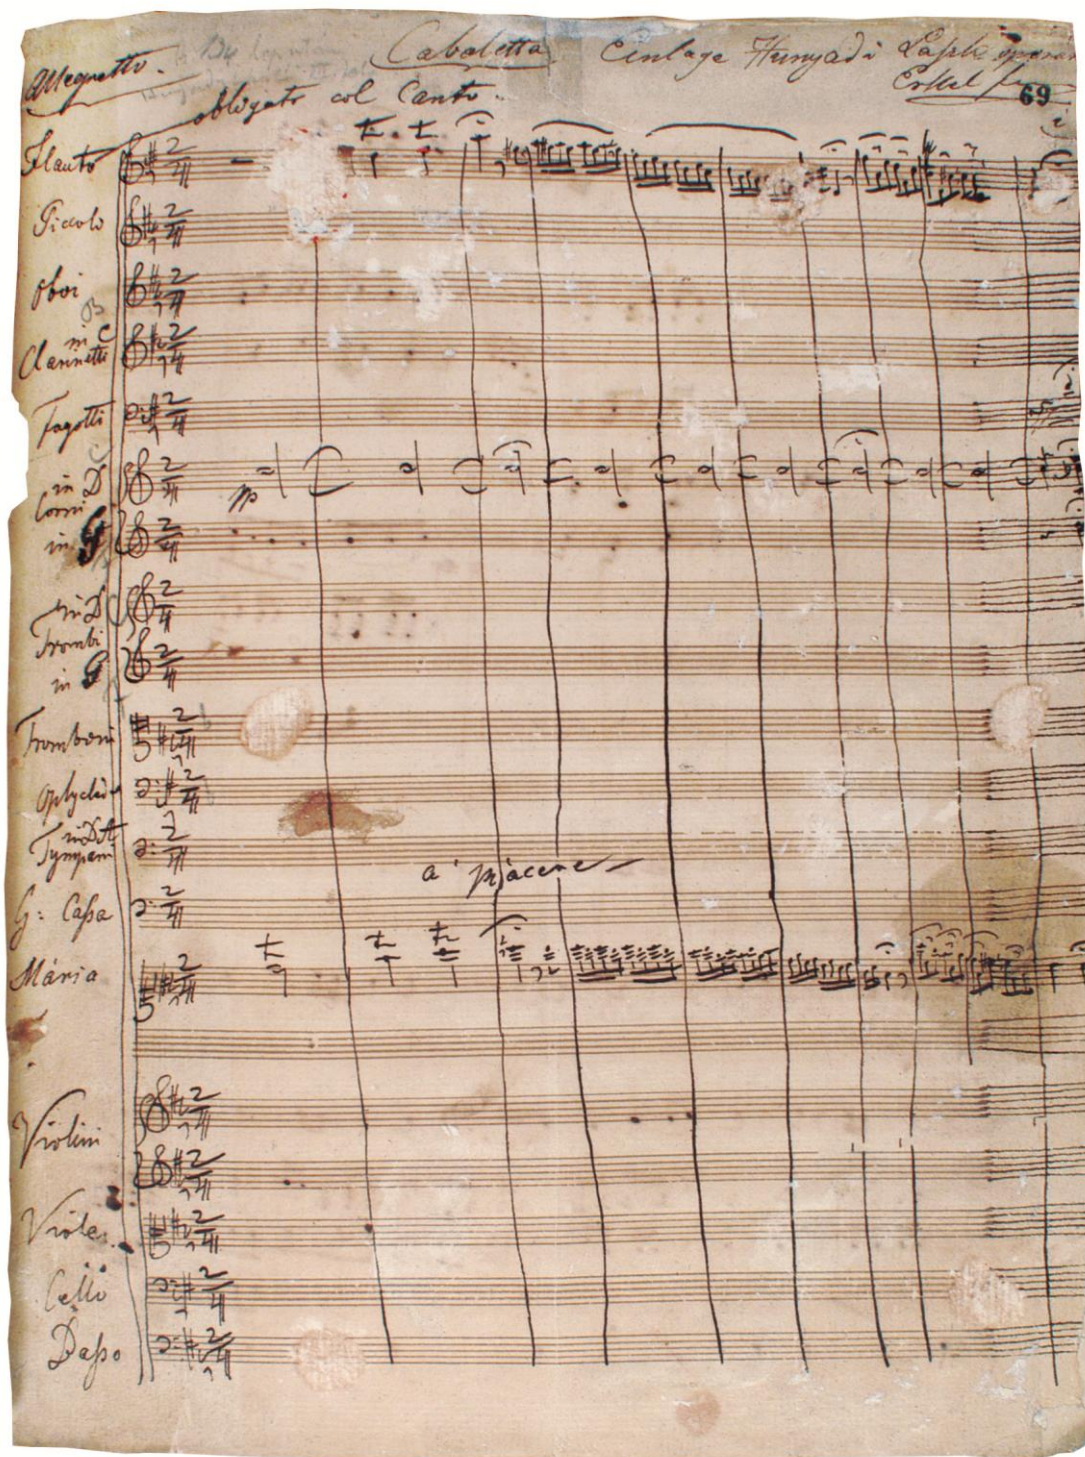 Allegretto.
Cabaletta
Einlage Hunyadi
Erkel
69
obligato col Canto.
Flauto
Piccolo
Oboi
in C
Clarinetti
Fagotti
in D
Corni
in G
p
in D
Trombi
in G
Tromboni
in D A
Tympani
a piacere
G: Cassa
Mária
Violini
Violes
Cello
Basso